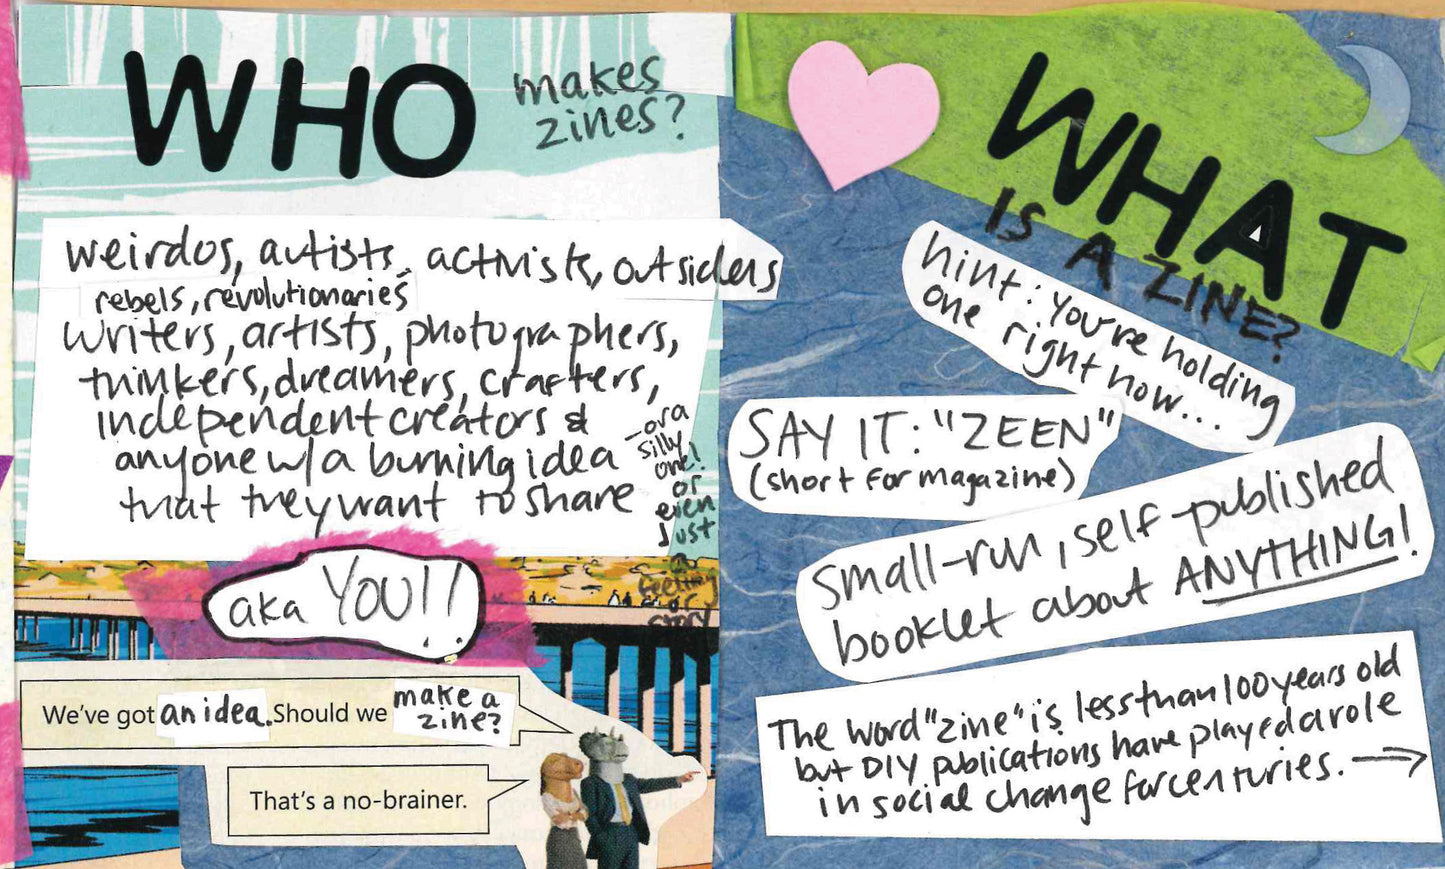 WHO
makes
zines?
weirdos, autists, activists, outsiders
rebels, revolutionaries
writers, artists, photographers,
thinkers, dreamers, crafters,
independent creators &
anyone w/a burning idea
that they want to share
—or a
silly
one!
or
even
just
a
feeling
or
story
aka YOU!!
We've got an idea. Should we make a
zine?
That's a no-brainer.
WHAT
IS A ZINE?
hint: you're holding
one right now...
SAY IT: "ZEEN"
(short for magazine)
small-run, self-published
booklet about ANYTHING!
The word "zine" is less than 100 years old
but DIY publications have played a role
in social change for centuries. →